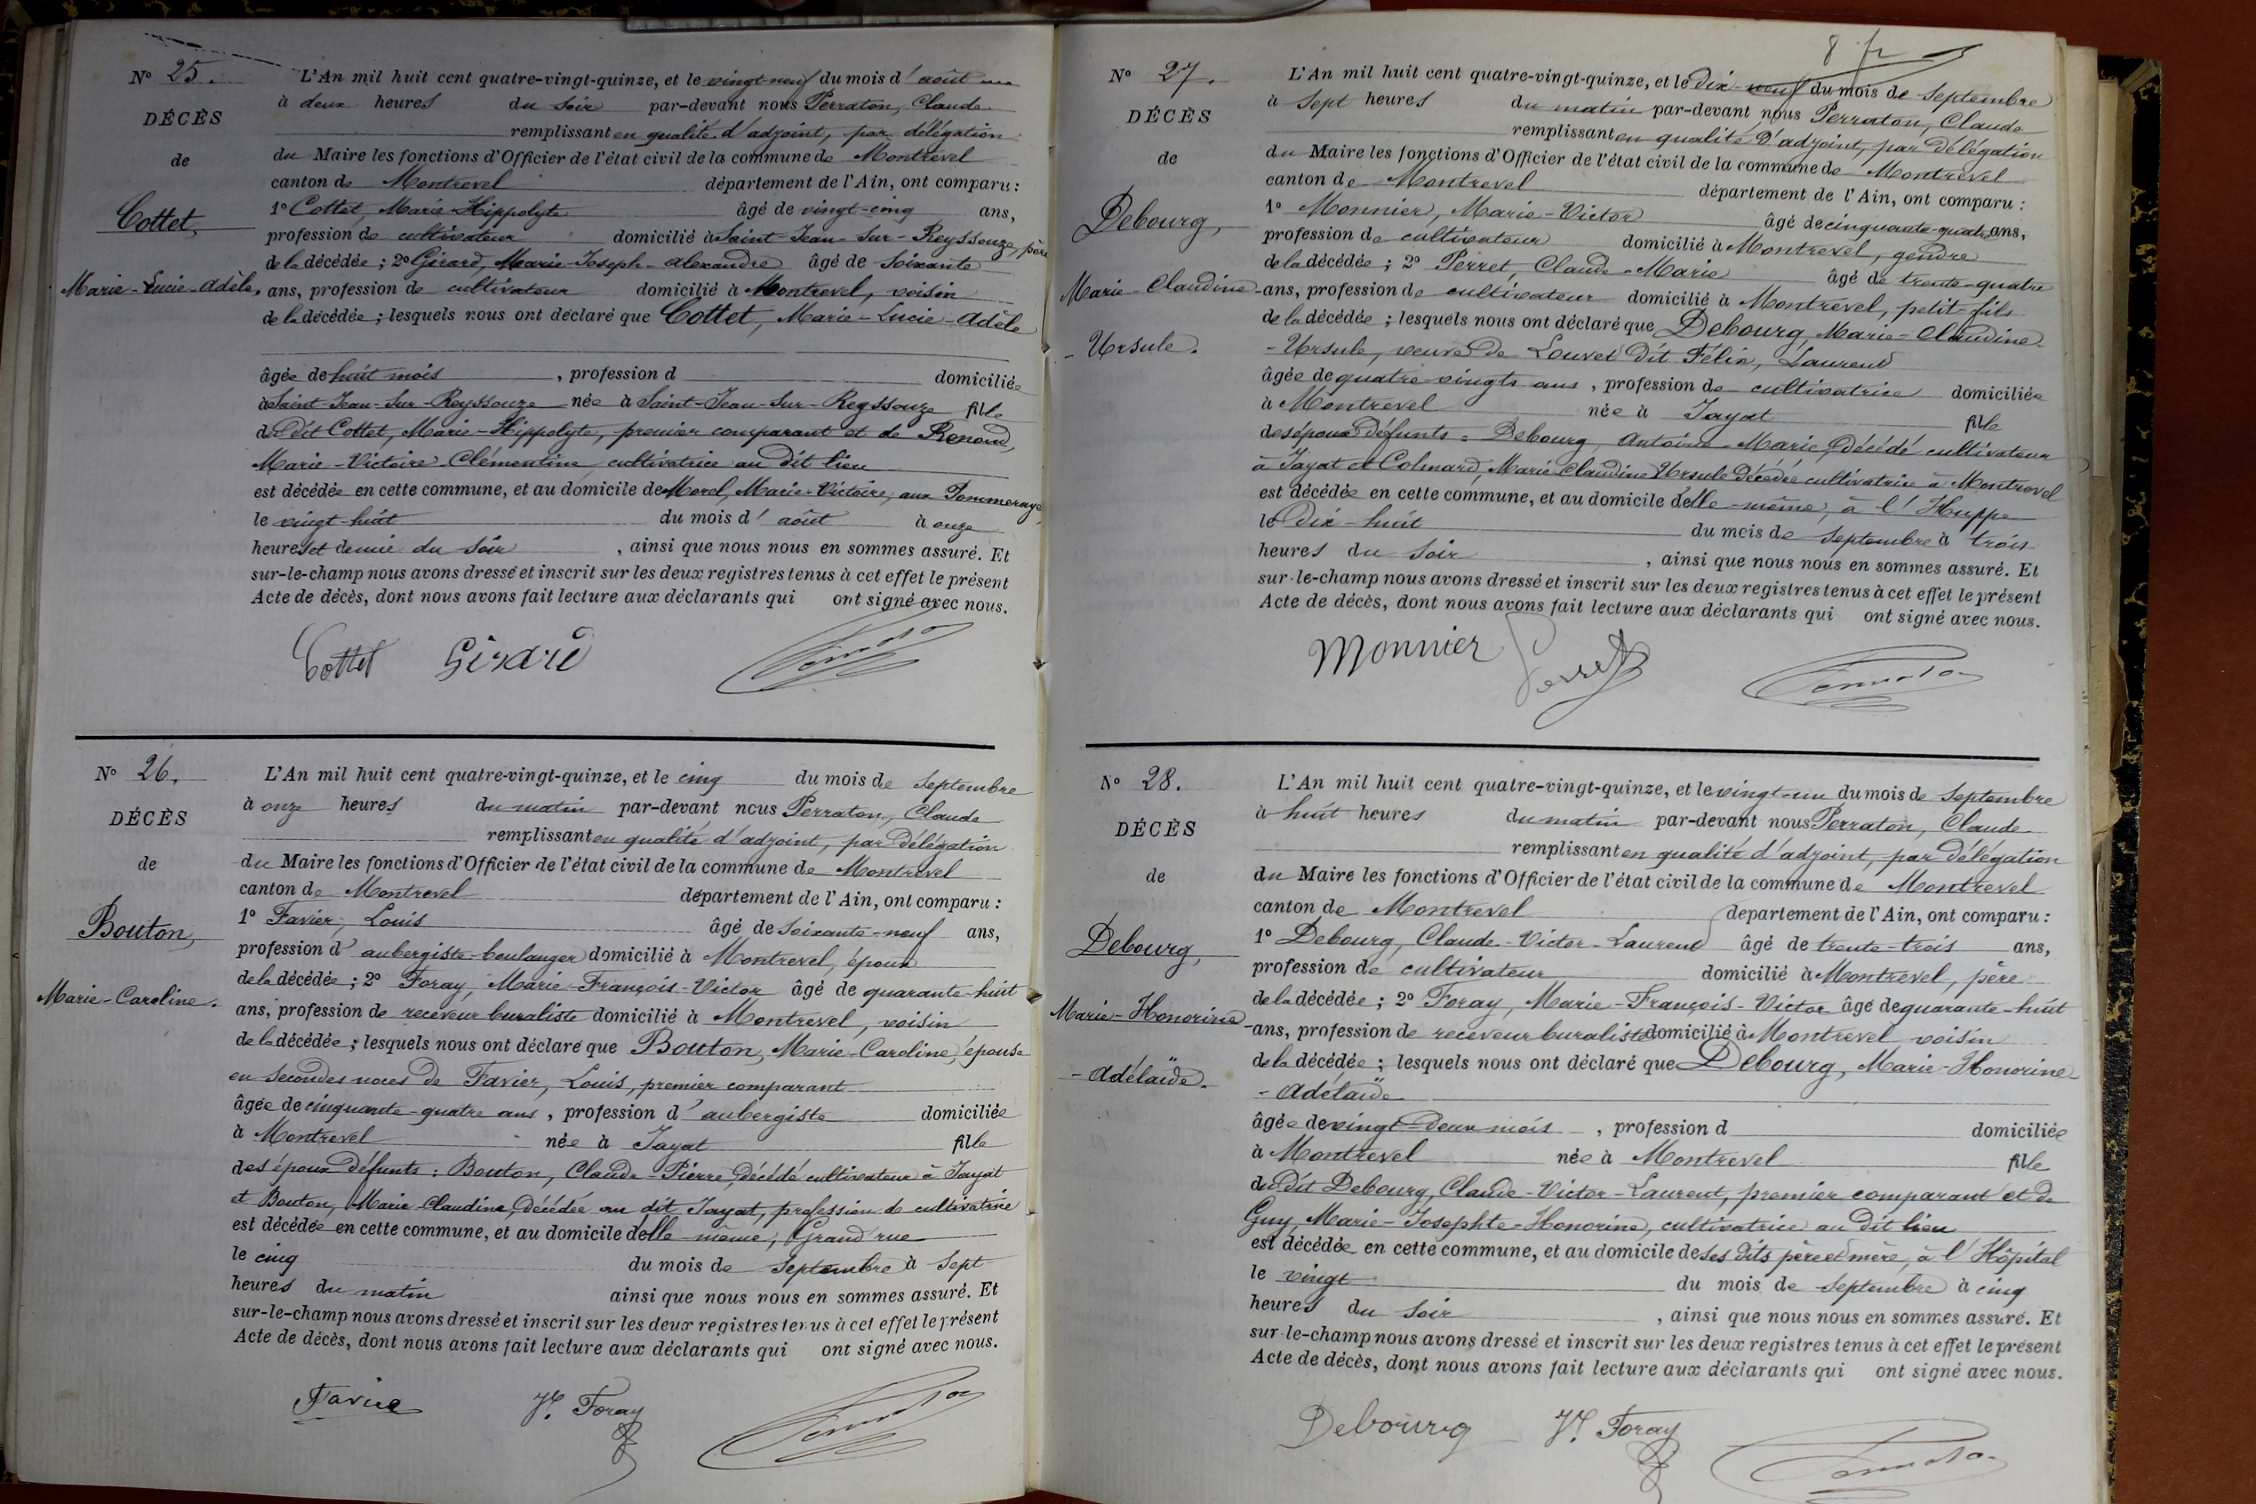 N° 25.
DÉCÈS
de
Cottet,
Marie-Lucie-Adèle.
L'An mil huit cent quatre-vingt-quinze, et le vingt-neuf du mois d'août
à deux heures du soir par-devant nous Perraton, Claude
remplissant en qualité d'adjoint, par délégation
du Maire les fonctions d'Officier de l'état civil de la commune de Montrevel
canton de Montrevel département de l'Ain, ont comparu :
1° Cottet, Marie-Hippolyte âgé de vingt-cinq ans,
profession de cultivateur domicilié à Saint-Jean-sur-Reyssouze, père
de la décédée ; 2° Girard, Marie-Joseph-Alexandre âgé de soixante
ans, profession de cultivateur domicilié à Montrevel, voisin
de la décédée ; lesquels nous ont déclaré que Cottet, Marie-Lucie-Adèle
âgée de huit mois , profession d domiciliée
à Saint-Jean-sur-Reyssouze née à Saint-Jean-sur-Reyssouze fille
du dit Cottet, Marie-Hippolyte, premier comparant et de Renoud,
Marie-Victoire-Clémentine cultivatrice au dit lieu
est décédée en cette commune, et au domicile de Morel, Marie-Victoire, aux Pommeraye,
le vingt-huit du mois d'août à onze
heures et demie du soir , ainsi que nous nous en sommes assuré. Et
sur-le-champ nous avons dressé et inscrit sur les deux registres tenus à cet effet le présent
Acte de décès, dont nous avons fait lecture aux déclarants qui ont signé avec nous.
Cottet Girard
N° 26.
DÉCÈS
de
Bouton,
Marie-Caroline.
L'An mil huit cent quatre-vingt-quinze, et le cinq du mois de septembre
à onze heures du matin par-devant nous Perraton, Claude
remplissant en qualité d'adjoint, par délégation
du Maire les fonctions d'Officier de l'état civil de la commune de Montrevel
canton de Montrevel département de l'Ain, ont comparu :
1° Favier, Louis âgé de soixante-neuf ans,
profession d'aubergiste-boulanger domicilié à Montrevel, époux
de la décédée ; 2° Foray, Marie-François-Victor âgé de quarante-huit
ans, profession de receveur buraliste domicilié à Montrevel, voisin
de la décédée ; lesquels nous ont déclaré que Bouton, Marie-Caroline, épouse
en secondes noces de Favier, Louis, premier comparant
âgée de cinquante-quatre ans , profession d'aubergiste domiciliée
à Montrevel née à Jayat fille
des époux défunts : Bouton, Claude-Pierre, décédé cultivateur à Jayat
et Bouton, Marie Claudine, décédée au dit Jayat, profession de cultivatrice
est décédée en cette commune, et au domicile d'elle-même, Grand'rue
le cinq du mois de septembre à sept
heures du matin ainsi que nous nous en sommes assuré. Et
sur-le-champ nous avons dressé et inscrit sur les deux registres tenus à cet effet le présent
Acte de décès, dont nous avons fait lecture aux déclarants qui ont signé avec nous.
Favier Vr. Foray
N° 27.
DÉCÈS
de
Debourg,
Marie-Claudine-
-Ursule.
L'An mil huit cent quatre-vingt-quinze, et le dix-neuf du mois de septembre
à sept heures du matin par-devant nous Perraton, Claude
remplissant en qualité d'adjoint, par délégation
du Maire les fonctions d'Officier de l'état civil de la commune de Montrevel
canton de Montrevel département de l'Ain, ont comparu :
1° Monnier, Marie-Victor âgé de cinquante-quatre ans,
profession de cultivateur domicilié à Montrevel, gendre
de la décédée ; 2° Perret, Claude-Marie âgé de trente-quatre
ans, profession de cultivateur domicilié à Montrevel, petit-fils
de la décédée ; lesquels nous ont déclaré que Debourg, Marie-Claudine-
-Ursule, veuve de Louvet dit Félix, Laurent
âgée de quatre vingts ans , profession de cultivatrice domiciliée
à Montrevel née à Jayat fille
des époux défunts : Debourg, Antoine-Marie, décédé cultivateur
à Jayat et Colmard, Marie Claudine Ursule décédée cultivatrice à Montrevel
est décédée en cette commune, et au domicile d'elle-même, à l'Huppe
le dix-huit du mois de septembre à trois
heures du soir , ainsi que nous nous en sommes assuré. Et
sur-le-champ nous avons dressé et inscrit sur les deux registres tenus à cet effet le présent
Acte de décès, dont nous avons fait lecture aux déclarants qui ont signé avec nous.
Monnier Perret
N° 28.
DÉCÈS
de
Debourg,
Marie-Honorine-
-Adélaïde.
L'An mil huit cent quatre-vingt-quinze, et le vingt-un du mois de septembre
à huit heures du matin par-devant nous Perraton, Claude
remplissant en qualité d'adjoint, par délégation
du Maire les fonctions d'Officier de l'état civil de la commune de Montrevel
canton de Montrevel département de l'Ain, ont comparu :
1° Debourg, Claude-Victor-Laurent âgé de trente-trois ans,
profession de cultivateur domicilié à Montrevel, père
de la décédée ; 2° Foray, Marie-François-Victor âgé de quarante-huit
ans, profession de receveur buraliste domicilié à Montrevel voisin
de la décédée ; lesquels nous ont déclaré que Debourg, Marie-Honorine-
-Adélaïde
âgée de vingt-deux mois , profession d domiciliée
à Montrevel née à Montrevel fille
du dit Debourg, Claude-Victor-Laurent, premier comparant et de
Guy, Marie-Josephte-Honorine, cultivatrice au dit lieu
est décédée en cette commune, et au domicile de ses dits père et mère, à l'Hôpital
le vingt du mois de septembre à cinq
heures du soir , ainsi que nous nous en sommes assuré. Et
sur-le-champ nous avons dressé et inscrit sur les deux registres tenus à cet effet le présent
Acte de décès, dont nous avons fait lecture aux déclarants qui ont signé avec nous.
Debourg Vr. Foray